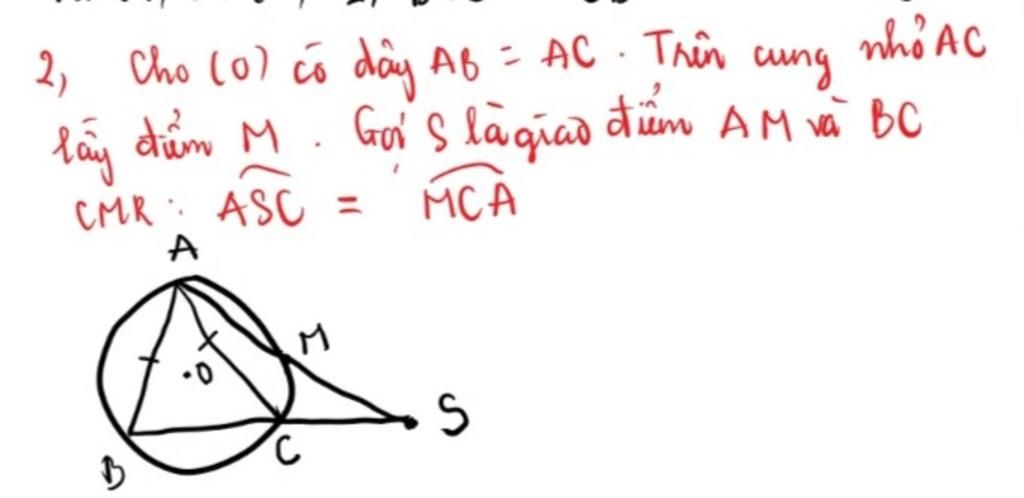 2, Cho (O) có dây AB = AC. Trên cung nhỏ AC
lấy điểm M. Gọi S là giao điểm AM và BC
CMR: ASC = MCA
A
M
O
S
C
B